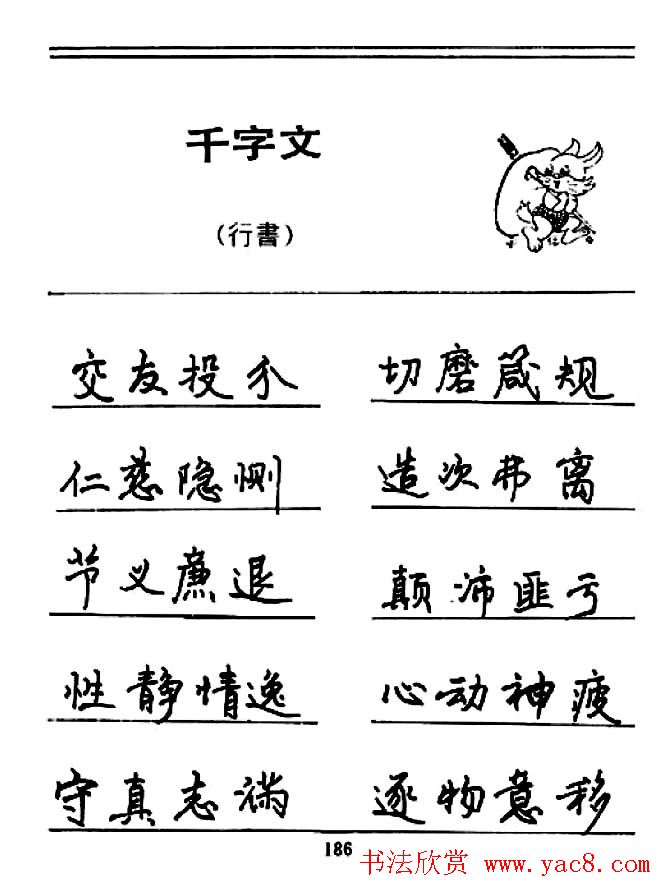 千字文
(行書)
交友投分 切磨箴规
仁慈隐恻 造次弗离
节义廉退 颠沛匪亏
性静情逸 心动神疲
守真志满 逐物意移
186
书法欣赏 www.yac8.com